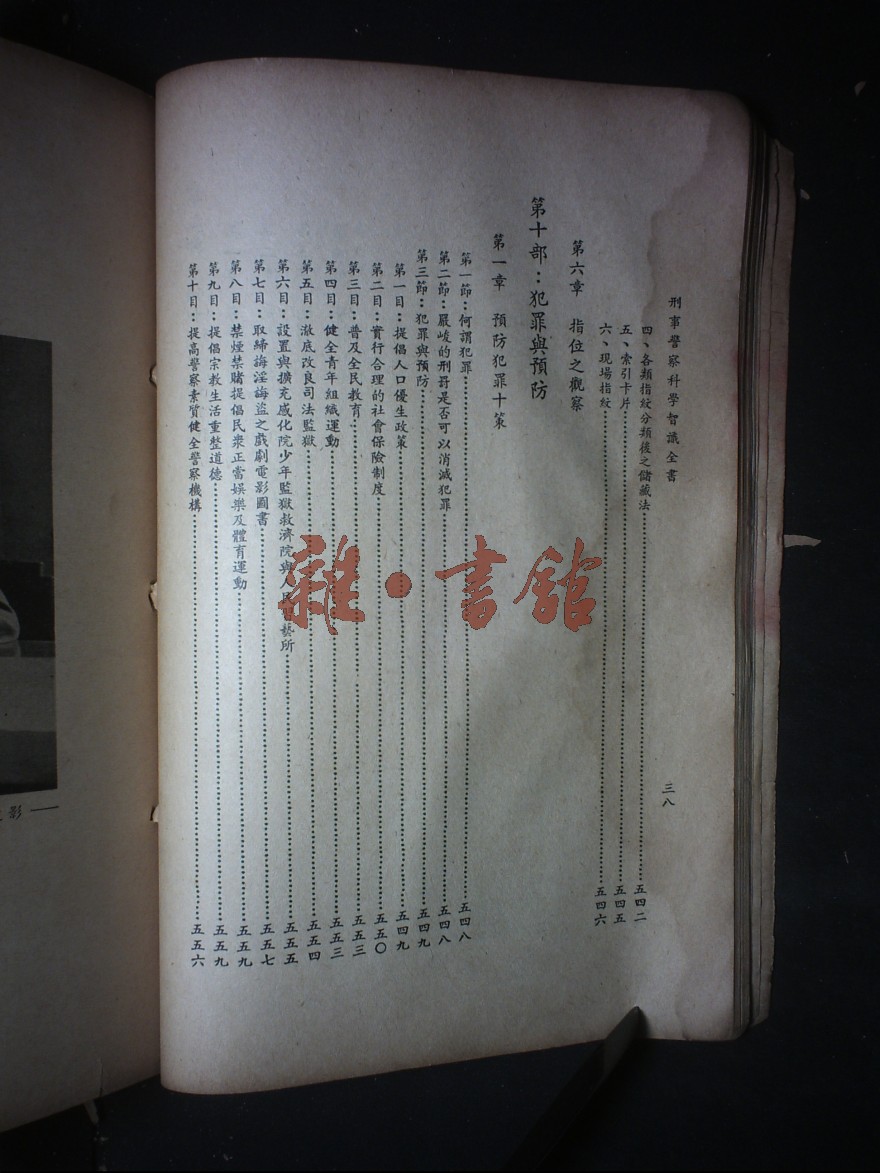 刑事警察科學智識全書
三八
四、各類指紋分類後之儲藏法……五四二
五、索引卡片……五四五
六、現場指紋……五四六
第六章 指位之觀察
第十部：犯罪與預防
第一章 預防犯罪十策
第一節：何謂犯罪……五四八
第二節：嚴峻的刑罰是否可以消滅犯罪……五四八
第三節：犯罪與預防……五四九
第一目：提倡人口優生政策……五四九
第二目：實行合理的社會保險制度……五五〇
第三目：普及全民教育……五五三
第四目：健全青年組織運動……五五三
第五目：澈底改良司法監獄……五五四
第六目：設置與擴充感化院少年監獄救濟院與人民習藝所……五五五
第七目：取締誨淫誨盜之戲劇電影圖書……五五七
第八目：禁煙禁賭提倡民衆正當娛樂及體育運動……五五九
第九目：提倡宗教生活重整道德……五五九
第十目：提高警察素質健全警察機構……五五六
雜·書館
影